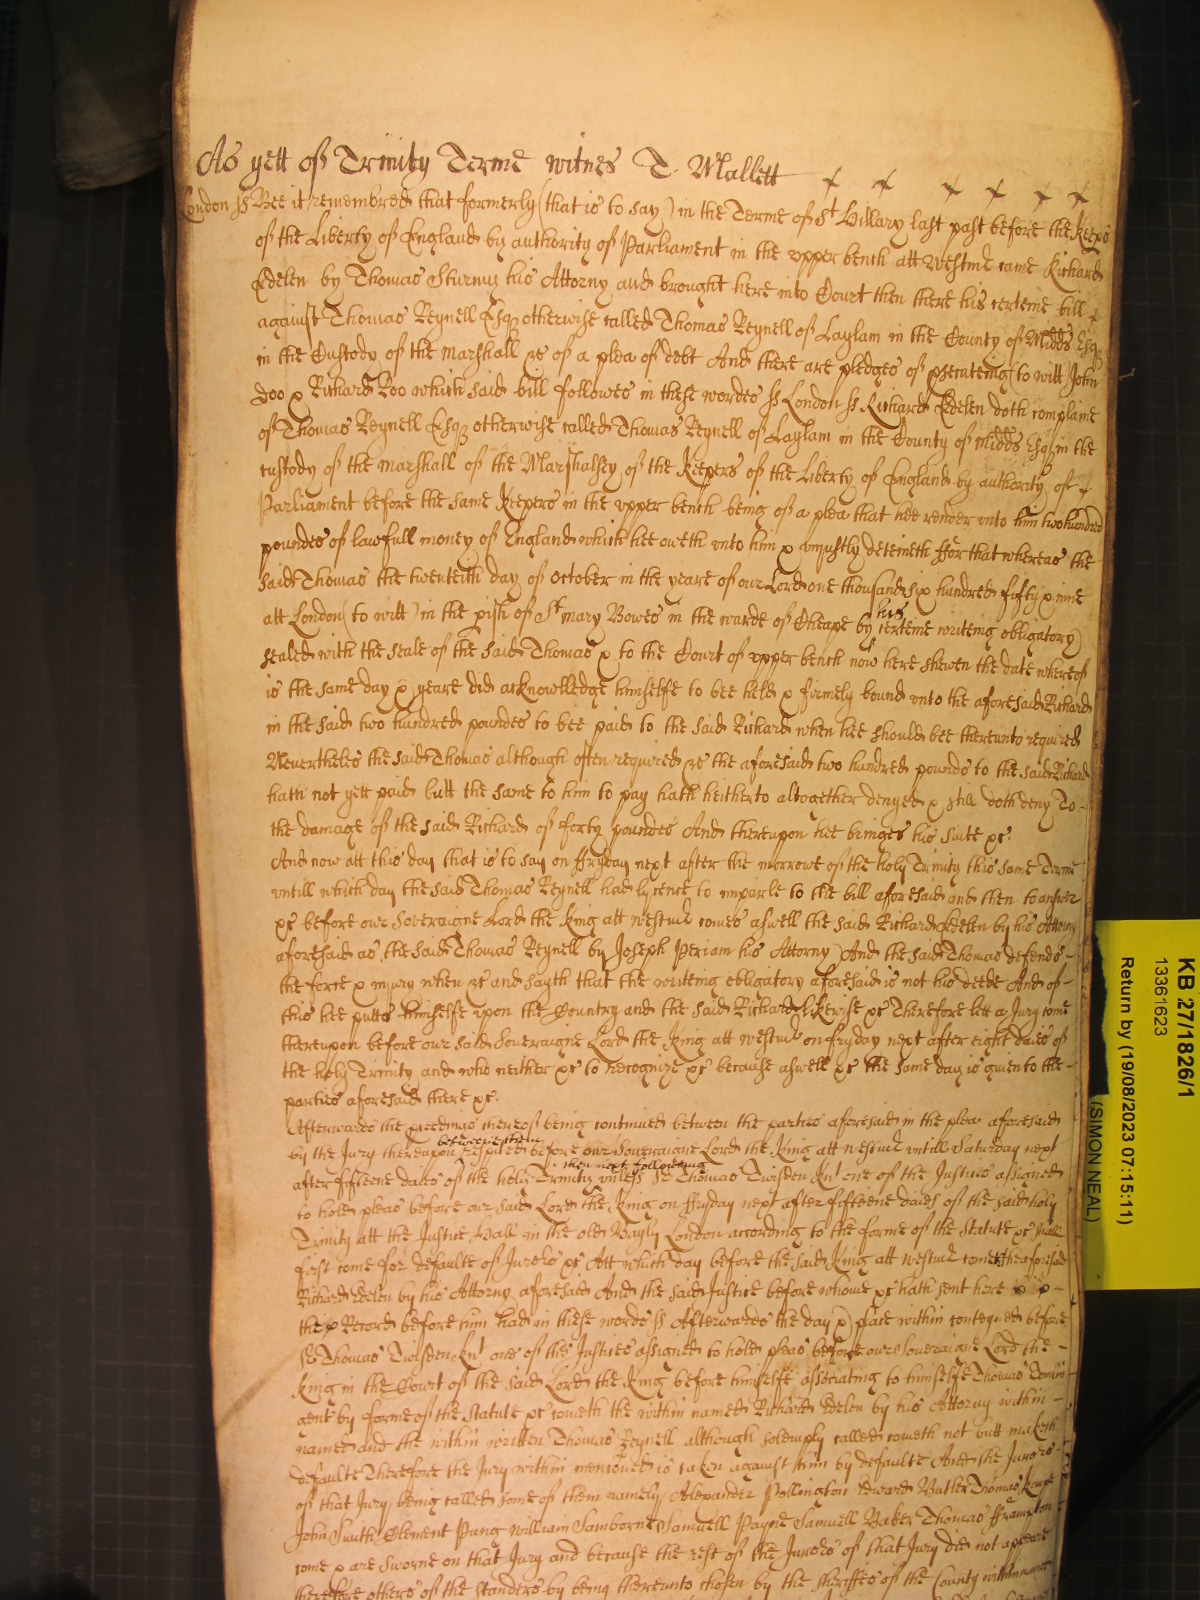 As yett of Trinity Terme witnes T. Mallett
London ss Bee it remembred that formerly (that is to say) in the Terme of St Hillary last past before the Keeps
of the Liberty of England by authority of Parliament in the upper bench att Westmr came Richard
Edelen by Thomas Sturmy his Attorny and brought here into Court then there his certeine bill
against Thomas Reynell Esqr otherwise called Thomas Reynell of Laglam in the County of Midds Esqr
in the Custody of the marshall &c of a plea of debt And there are pledges of psecuteing (to witt) John
Doo & Richard Roo which said bill followes in these wordes ss London ss Richard Edelen doth complaine
of Thomas Reynell Esqr otherwise called Thomas Reynell of Laglam in the County of Midds Esqr in the
custody of the marshall of the Marshalsey of the Keepers of the Liberty of England by authority of
Parliament before the same Keepers in the upper bench being of a plea that hee render unto him two hundred
poundes of lawfull money of England which hee oweth unto him & uniustly deteineth ffor that whereas the
said Thomas the twenteith day of October in the yeare of our Lord one thousand six hundred fifty & nine
att London (to witt) in the pish of St mary Bowes in the warde of Cheape by his certeine writeing obligatory
sealed with the seale of the said Thomas & to the Court of upper bench now here shewen the date whereof
is the same day & yeare did acknowledge himselfe to bee held & firmely bound unto the aforesaid Richard
in the said two hundred poundes to bee paid to the said Richard when hee should bee thereunto required
Neverthelesse the said Thomas although often required &c the aforesaid two hundred pounds to the said Richard
hath not yett paid butt the same to him to pay hath heitherto altogether denyed & still doth deny To
the damage of the said Richard of forty poundes And thereupon hee bringes his suite &c:
And now att this day that is to say on ffryday next after the morrowe of the holy Trinity this same Terme
untill which day the said Thomas Reynell had lycence to imparle to the bill aforesaid and then to answer
&c before our Soveraigne Lord the King att westmr comes aswell the said Richard Edelen by his Attorny
aforesaid as the said Thomas Reynell by Joseph Periam his Attorny And the said Thomas defends
the force & iniury when &c and sayth that the writeing obligatory aforesaid is not his deede And of
this hee putts himselfe upon the Country and the said Richard likewise &c Therefore lett a Jury come
thereupon before our said Soveraigne Lord the King att westmr on ffryday next after eight daies of
the holy Trinity and who neither &c to recognize &c because aswell &c the same day is given to the
parties aforesaid there &c:
Afterwards the pceedings thereof being continued between the parties aforesaid in the plea aforesaid
by the Jury thereupon respited betweene them before our Soveraigne Lord the King att westmr untill Saturday next
after fifteene daies of the holy Trinity then next following unless Sr Thomas Twisden Knt one of the Justices assigned
to hold pleas before our said Lord the King on ffryday next after fifteene daies of the said holy
Trinity att the Justice Hall in the old Bayly London according to the forme of the Statute &c shall
first come for defaulte of Jurors &c Att which day before the said King att westmr cometh the aforesaid
Richard Edelen by his Attorny aforesaid And the said Justice before whome &c hath sent here
the Record before him had in these words ss Afterwards the day & place within conteyned before
Sr Thomas Twisden Knt one of the Justices assigned to hold pleas before our Soveraigne Lord the
King in the Court of the said Lord the King before himselfe associating to himselfe Thomas
gent by forme of the Statute &c cometh the within named Richard Edelen by his Attorny within
named and the within written Thomas Reynell although solemply called cometh not butt maketh
defaulte Therefore the Jury within mencioned is taken against him by defaulte And the Jurors
of that Jury being called some of them namely Alexander Pollington Edward Butler Thomas Kempe
John Smith Clement Pung William Samborne Samuell Payne Samuell Baker Thomas Frampton
come & are sworne on that Jury and because the rest of the Jurors of that Jury did not appeare
therefore others of the standers by being thereunto chosen by the Sheriffes of the County within named
KB 27/1826/1
13361623
Return by (19/08/2023 07:15:11)
(SIMON NEAL)